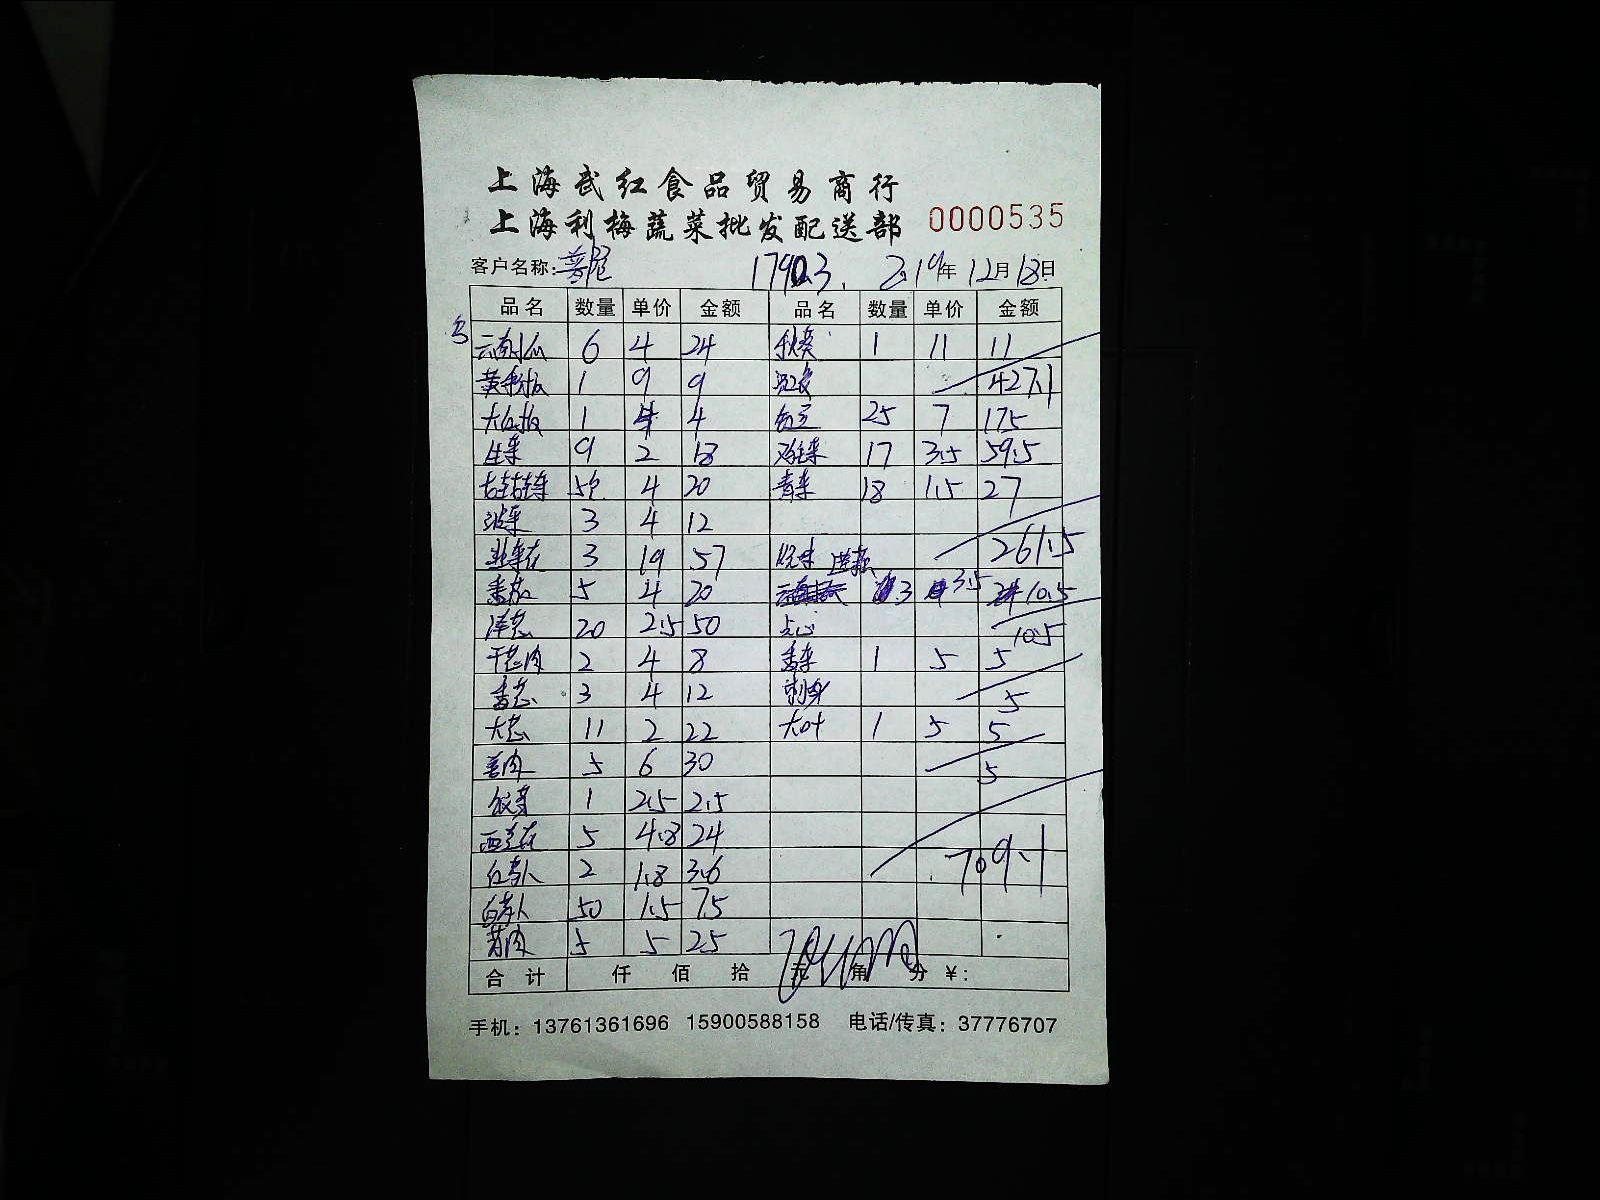 上海武红食品贸易商行
上海利梅蔬菜批发配送部 0000535
客户名称: 2019年12月18日
品名 数量 单价 金额 品名 数量 单价 金额
6 4 24 秋葵 1 11 11
1 9 9 427.1
1 4 4 175 25 7
生菜 9 2 18 17 3.5 59.5
4 20 青菜 18 1.5 27
菠菜 3 4 12
韭菜花 3 19 57 261.5
番茄 5 4 20 3 3.5 10.5
洋葱 20 2.5 50 点心 10.5
干葱肉 2 4 8 香菜 1 5 5
香葱 3 4 12 刺身 5
大葱 11 2 22 大叶 1 5 5
姜肉 5 6 30 5
1 2.5 2.5
西兰花 5 4.8 24
2 1.8 3.6 709.1
50 1.5 75
5 5 25
合计 仟 佰 拾 元 角 分 ¥:
手机: 13761361696 15900588158 电话/传真: 37776707